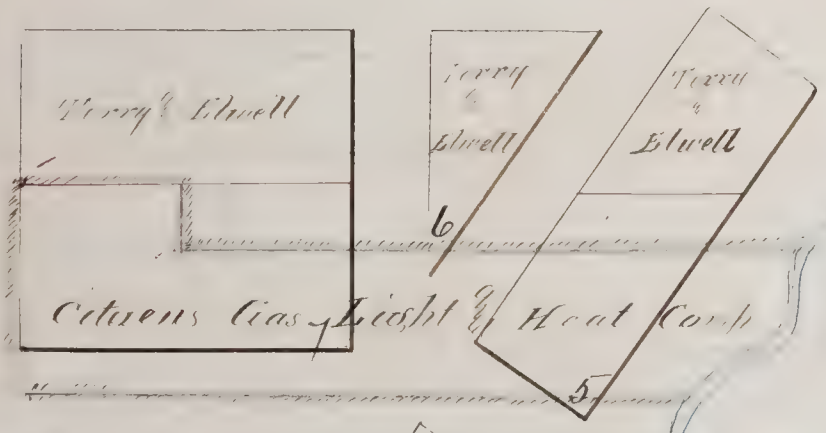 Terry & Elwell
Terry
&
Elwell
Terry
&
Elwell
6
Citizens Gas Light & Heat Comp.
7
5